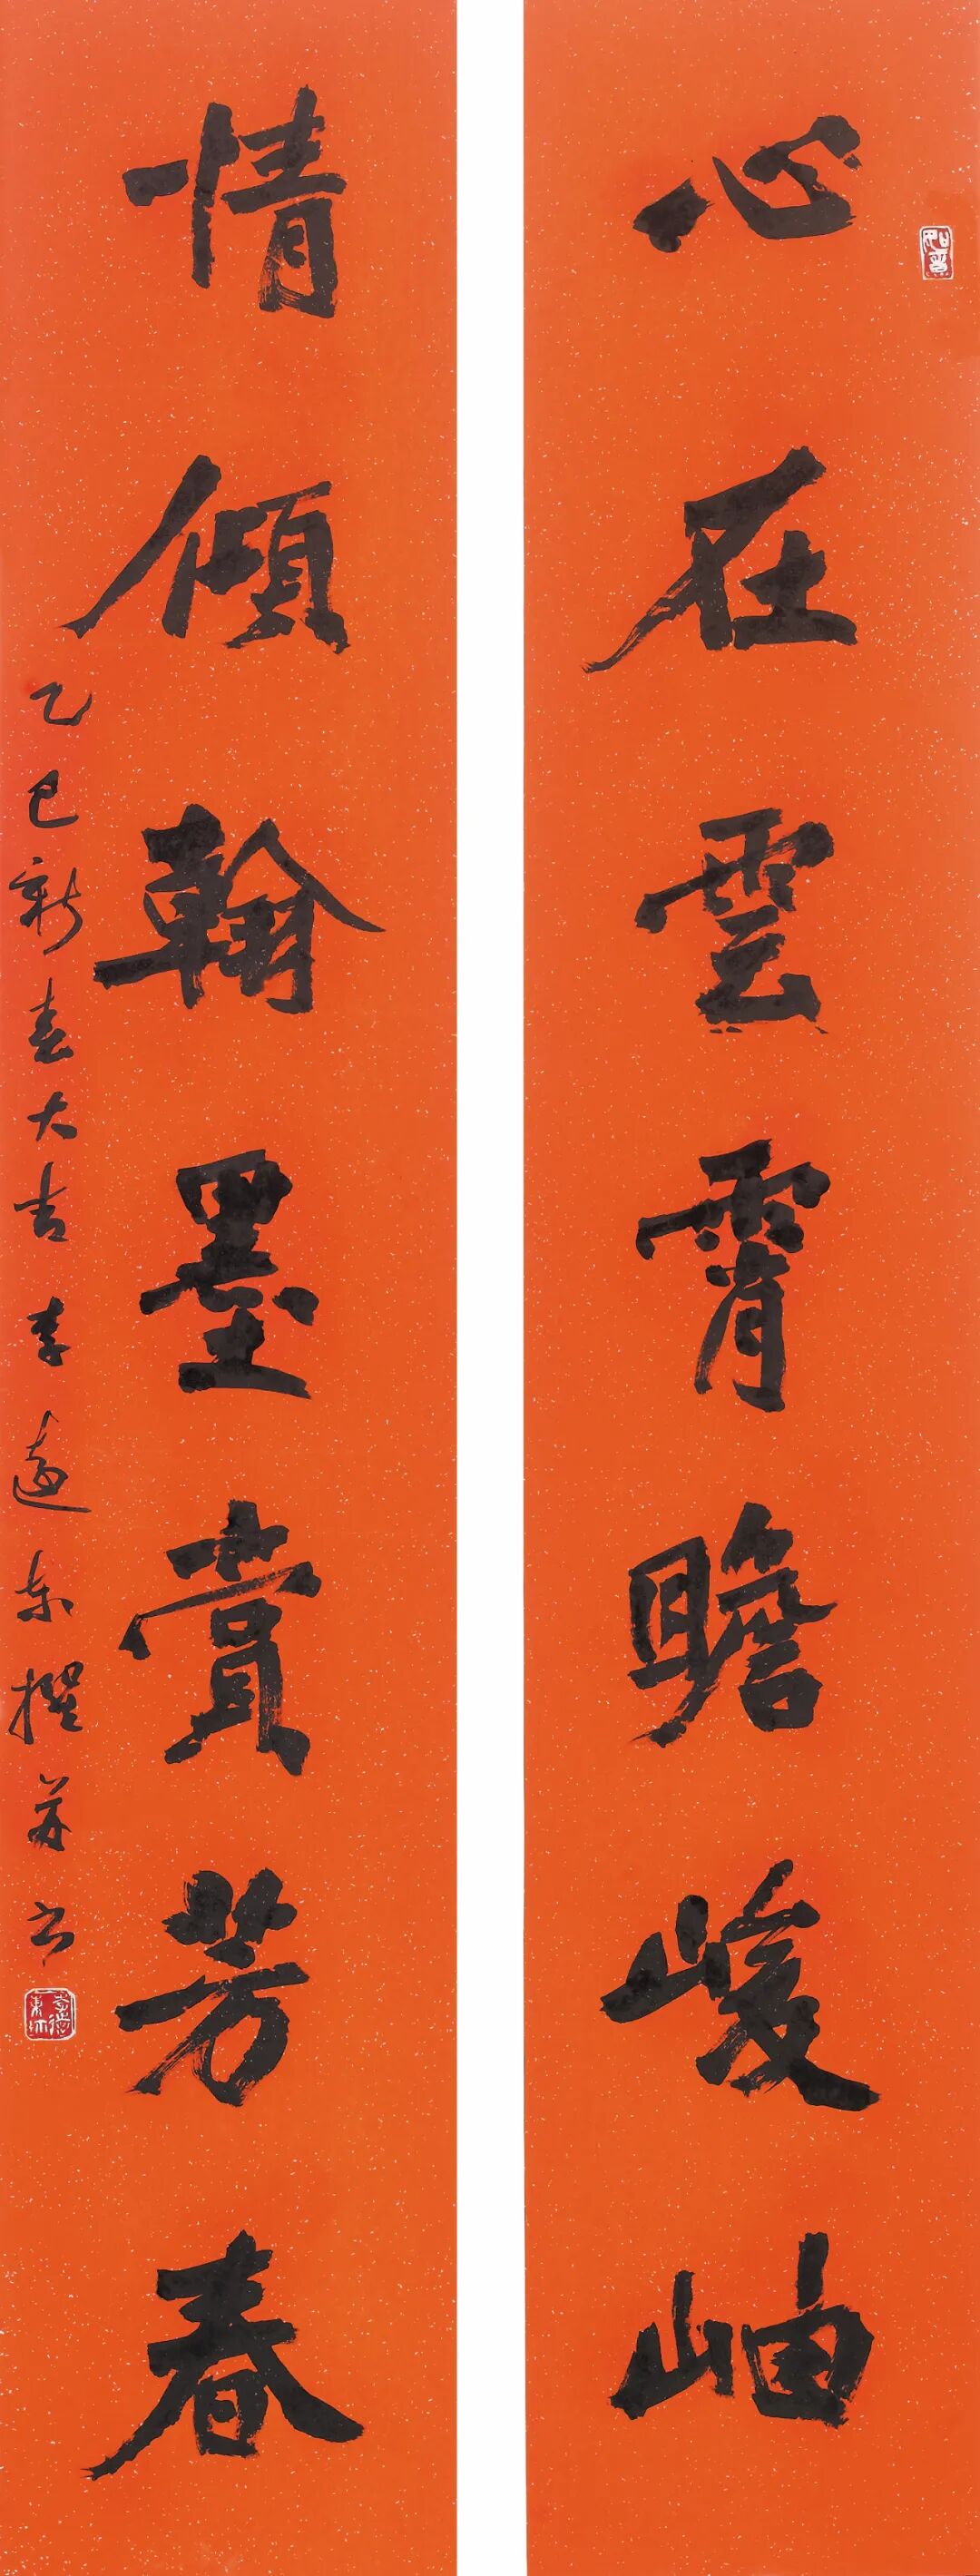 心在雲霄瞻峻岫
情傾翰墨賞芳春
乙巳新春大吉李遠東撰并書